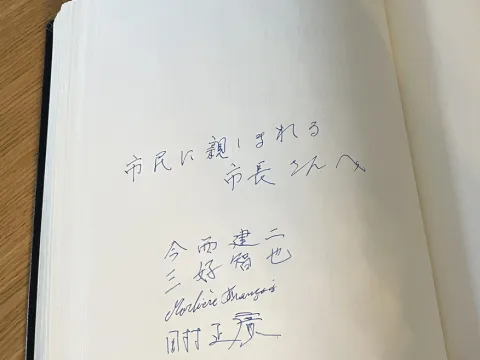 市民に親しまれる
市長さんへ
今西建二
三好智也
François
田村正